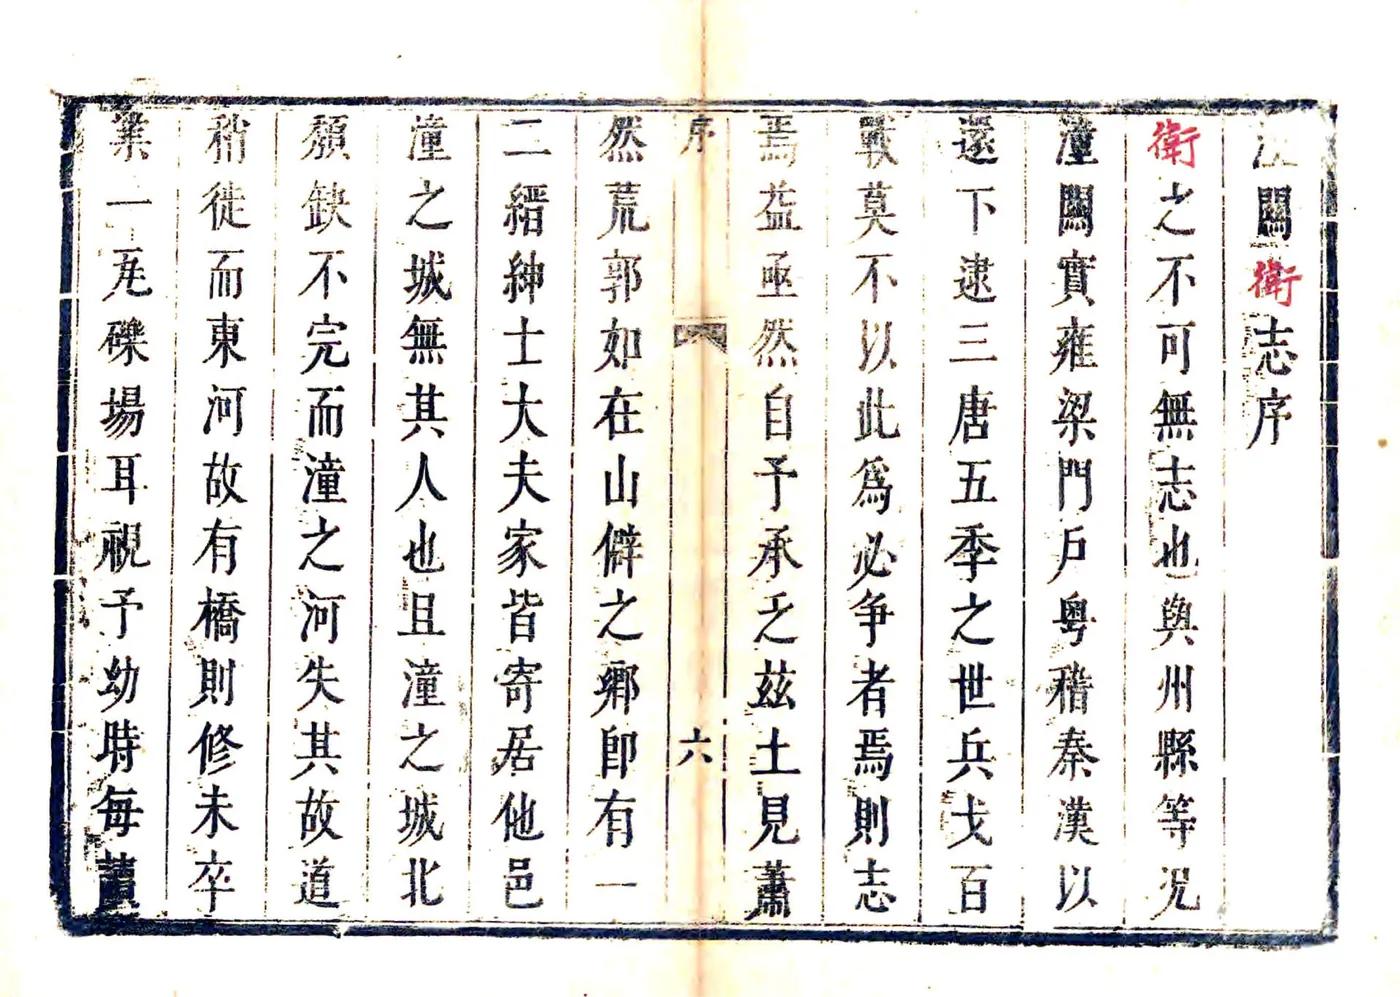 潼關衛志序
衛之不可無志也與州縣等况
潼關實雍梁門戶粵稽秦漢以
還下逮三唐五季之世兵戈百
戰莫不以此爲必爭者焉則志
焉益亟然自予承乏茲土見蕭
序 六
然荒郭如在山僻之鄉卽有一
二縉紳士大夫家皆寄居他邑
潼之城無其人也且潼之城北
頽缺不完而潼之河失其故道
稍徙而東河故有橋則修未卒
業一瓦礫場耳視予幼時每讀